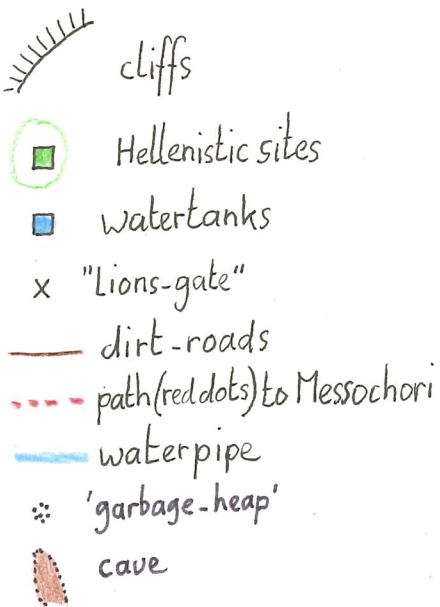 cliffs
Hellenistic sites
watertanks
x "Lions-gate"
dirt-roads
path (red dots) to Messochori
waterpipe
'garbage-heap'
cave